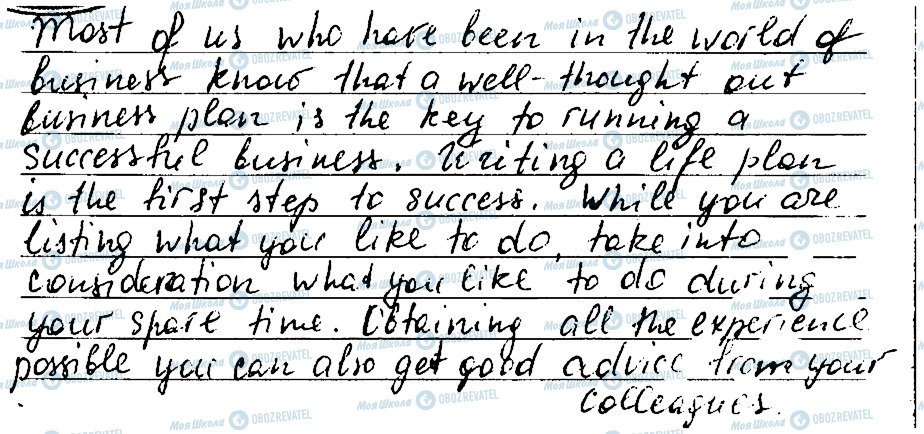 Most of us who have been in the world of
business know that a well-thought out
business plan is the key to running a
successful business. Writing a life plan
is the first step to success. While you are
listing what you like to do, take into
consideration what you like to do during
your spare time. Obtaining all the experience
possible you can also get good advice from your
colleagues.